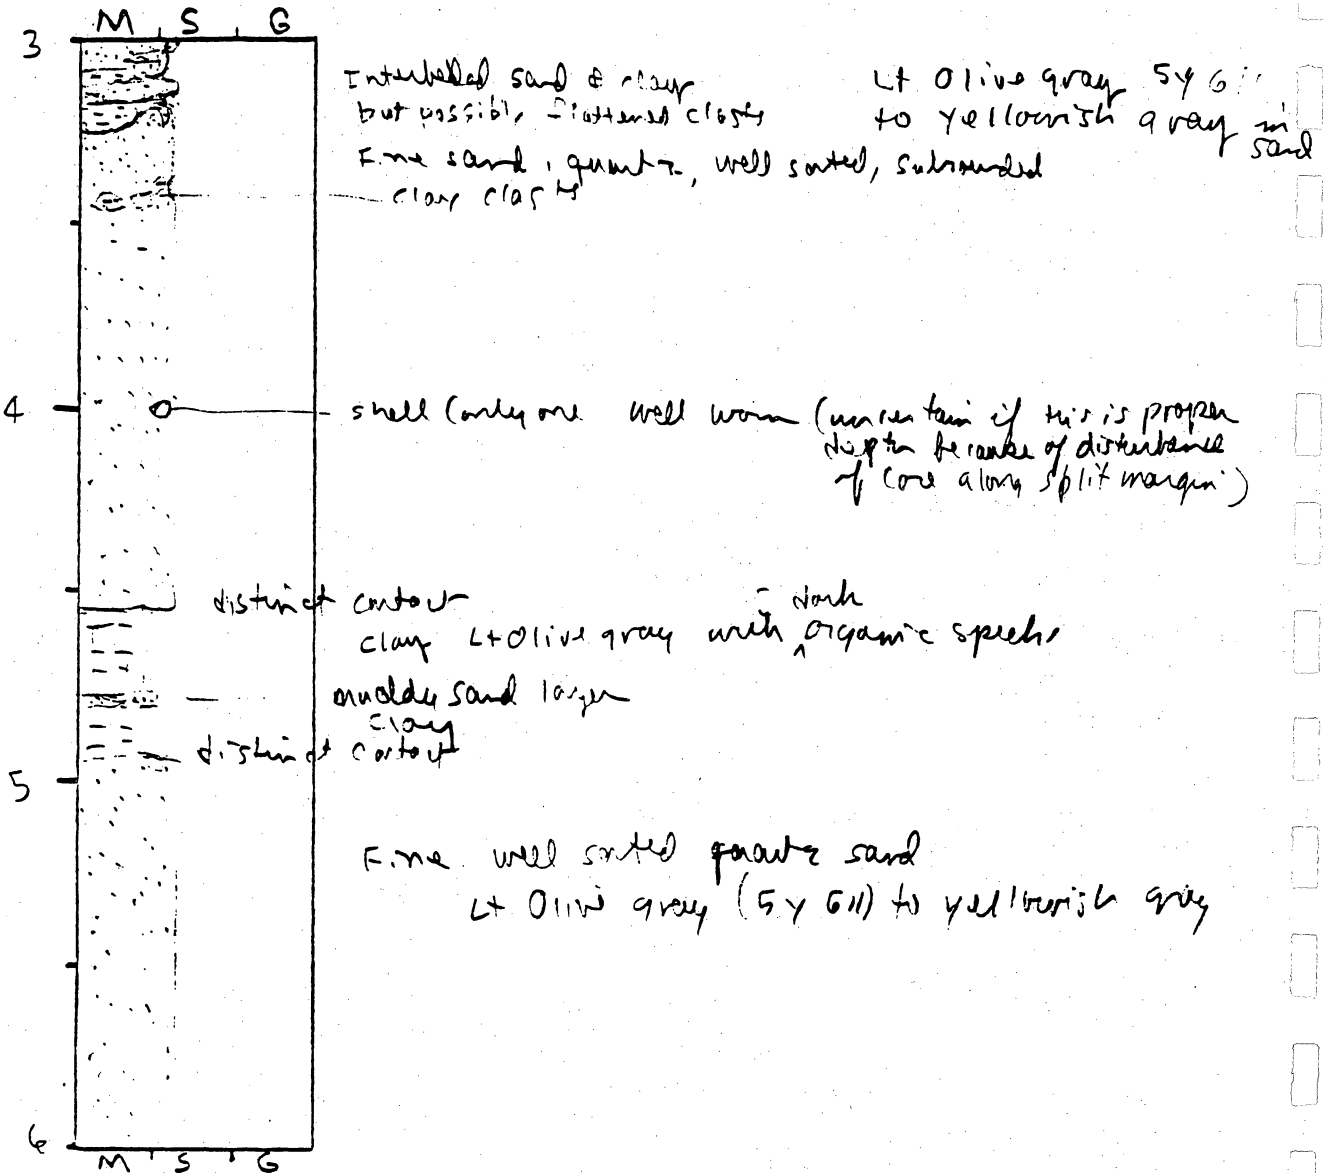 M S G
3
Interbedded sand & clay
but possible flattened clasts
Lt Olive gray 5Y 6/1
to yellowish gray in
sand
Fine sand, quartz, well sorted, subrounded
clay clasts
4
shell (only one well worn (uncertain if this is proper
depth because of disturbance
of core along split margin)
distinct contact
dark
clay Lt Olive gray with ^ organic specks
muddy sand layer
clay
distinct contact
5
Fine well sorted quartz sand
Lt Olive gray (5Y 6/1) to yellowish gray
6
M S G